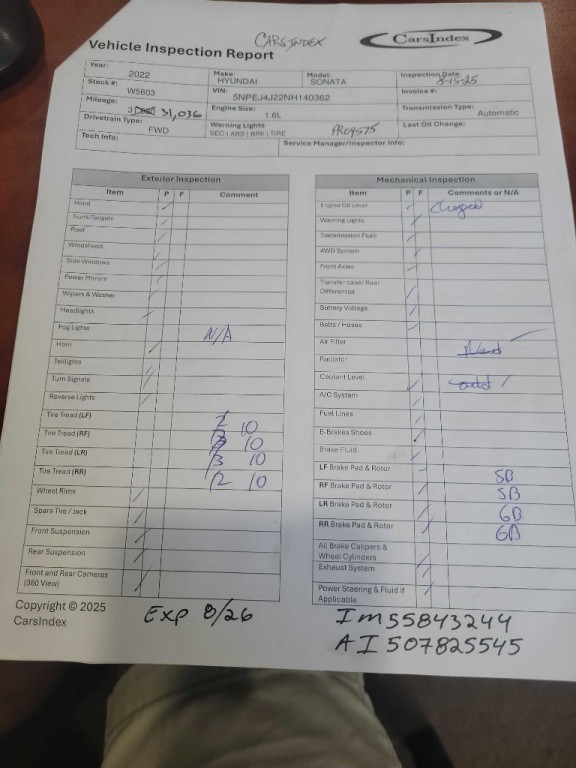 CARSINDEX
CarsIndex
Vehicle Inspection Report
Year: 2022 Make: HYUNDAI Model: SONATA Inspection Date: 8-15-25
Stock #: W5603 VIN: 5NPEJ4J22NH140362 Invoice #:
Mileage: 31,036 Engine Size: 1.6L Transmission Type: Automatic
Drivetrain Type: FWD Warning Lights SEC | ABS | BRK | TIRE PRO9575 Last Oil Change:
Tech Info: Service Manager/Inspector Info:
Exterior Inspection
Item P F Comment
Hood
Trunk/Tailgate
Roof
Windshield
Side Windows
Power Mirrors
Wipers & Washer
Headlights
Fog Lights N/A
Horn
Taillights
Turn Signals
Reverse Lights
Tire Tread (LF) 10
Tire Tread (RF) 10
Tire Tread (LR) 10
Tire Tread (RR) 10
Wheel Rims
Spare Tire / Jack
Front Suspension
Rear Suspension
Front and Rear Cameras
(360 View)
Mechanical Inspection
Item P F Comments or N/A
Engine Oil Level
Warning Lights
Transmission Fluid
4WD System
Front Axles
Transfer case/ Rear
Differential
Battery Voltage
Belts / Hoses
Air Filter
Radiator
Coolant Level add
A/C System
Fuel Lines
E-Brakes Shoes
Brake Fluid
LF Brake Pad & Rotor
RF Brake Pad & Rotor
LR Brake Pad & Rotor
RR Brake Pad & Rotor
All Brake Calipers &
Wheel Cylinders
Exhaust System
Power Steering & Fluid if
Applicable
Copyright © 2025
CarsIndex
EXP 8/26
IM55843244
AI507825545